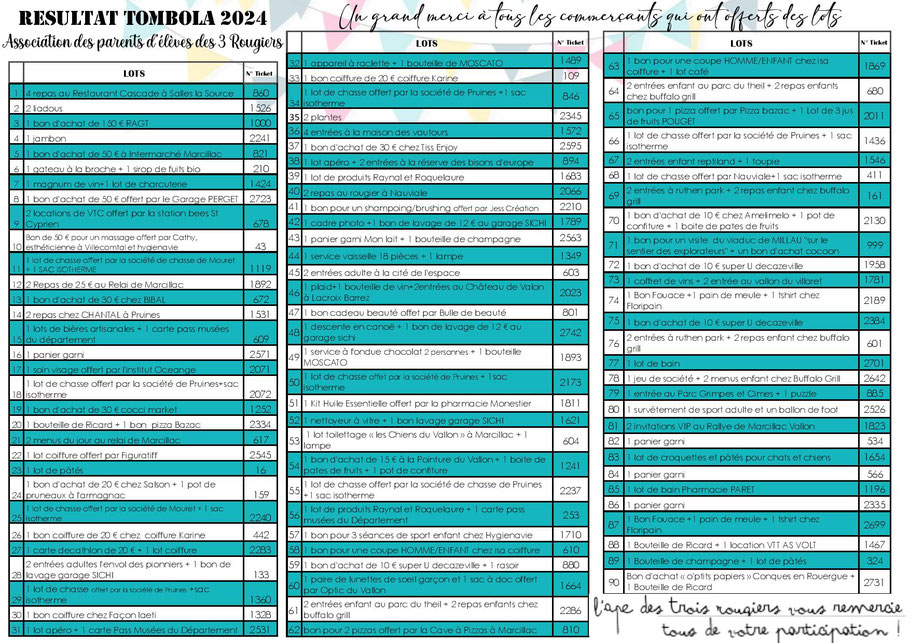 RESULTAT TOMBOLA 2024
Association des parents d'élèves des 3 Rougiers
Un grand merci à tous les commerçants qui ont offerts des lots
LOTS N° Ticket
1 4 repas au Restaurant Cascade à Salles la Source 860
2 2 liadous 1526
3 1 bon d'achat de 150 € RAGT 1000
4 1 jambon 2241
5 1 bon d'achat de 50 € à Intermarché Marcillac 821
6 1 gateau à la broche + 1 sirop de fuits bio 210
7 1 magnum de vin+1 lot de charcuterie 1424
8 1 bon d'achat de 50 € offert par le Garage PERGET 2723
2 locations de VTC offert par la station bees St
9 Cyprien 678
Bon de 50 € pour un massage offert par Cathy,
10 esthéticienne à Villecomtal et hygienavie 43
1 lot de chasse offert par la société de chasse de Mouret
11 + 1 SAC ISOTHERME 1119
12 2 Repas de 25 € au Relai de Marcillac 1892
13 1 bon d'achat de 30 € chez BIBAL 672
14 2 repas chez CHANTAL à Pruines 1531
1 lots de bières artisanales + 1 carte pass musées
15 du département 609
16 1 panier garni 2571
17 1 soin visage offert par l'institut Oceange 2071
1 lot de chasse offert par la société de Pruines+sac
18 isotherme 2072
19 1 bon d'achat de 30 € cocci market 1252
20 1 bouteille de Ricard + 1 bon pizza Bazac 2334
21 2 menus du jour au relai de Marcillac 617
22 1 lot coiffure offert par Figuratiff 2545
23 1 lot de pâtés 16
1 bon d'achat de 20 € chez Salson + 1 pot de
24 pruneaux à l'armagnac 159
1 lot de chasse offert par la société de Mouret + 1 sac
25 isotherme 2240
26 1 bon coiffure de 20 € chez coiffure Karine 442
27 1 carte decathlon de 20 € + 1 lot coiffure 2283
2 entrées adultes l'envol des pionniers + 1 bon de
28 lavage garage SICHI 133
1 lot de chasse offert par la société de Pruines +sac
29 isotherme 1360
30 1 bon coiffure chez Façon laeti 1328
31 1 lot apéro + 1 carte Pass Musées du Département 2531
LOTS N° Ticket
32 1 appareil à raclette + 1 bouteille de MOSCATO 1489
33 1 bon coiffure de 20 € coiffure Karine 109
1 lot de chasse offert par la société de Pruines +1 sac
34 isotherme 846
35 2 plantes 2345
36 4 entrées à la maison des vautours 1572
37 1 bon d'achat de 30 € chez Tiss Enjoy 2595
38 1 lot apéro + 2 entrées à la réserve des bisons d'europe 894
39 1 lot de produits Raynal et Roquelaure 1683
40 2 repas au rougier à Nauviale 2066
41 1 bon pour un shampoing/brushing offert par Jess Création 2210
42 1 cadre photo +1 bon de lavage de 12 € au garage SICHI 1789
43 1 panier garni Mon lait + 1 bouteille de champagne 2563
44 1 service vaisselle 18 pièces + 1 lampe 1349
45 2 entrées adulte à la cité de l'espace 603
46 1 plaid+1 bouteille de vin+2entrées au Château de Valon
à Lacroix Barrez 2023
47 1 bon cadeau beauté offert par Bulle de beauté 801
48 1 descente en canoë + 1 bon de lavage de 12 € au
garage sichi 2742
49 1 service à fondue chocolat 2 personnes + 1 bouteille
MOSCATO 1893
50 1 lot de chasse offert par la société de Pruines + 1sac
isotherme 2173
51 1 Kit Huile Essentielle offert par la pharmacie Monestier 1811
52 1 nettoyeur à vitre + 1 bon lavage garage SICHI 1621
53 1 lot toilettage « les Chiens du Vallon » à Marcillac + 1
lampe 604
54 1 bon d'achat de 15 € à la Pointure du Vallon + 1 boite de
pates de fruits + 1 pot de confiture 1241
55 1 lot de chasse offert par la société de chasse de Pruines
+1 sac isotherme 2237
56 1 lot de produits Raynal et Roquelaure + 1 carte pass
musées du Département 253
57 1 bon pour 3 séances de sport enfant chez Hygienavie 1710
58 1 bon pour une coupe HOMME/ENFANT chez isa coiffure 610
59 1 bon d'achat de 10 € super U decazeville + 1 rasoir 880
60 1 paire de lunettes de soeil garçon et 1 sac à doc offert
par Optic du Vallon 1664
61 2 entrées enfant au parc du theil + 2 repas enfants chez
buffalo grill 2286
62 bon pour 2 pizzas offert par la Cave à Pizzas à Marcillac 810
LOTS N° Ticket
63 1 bon pour une coupe HOMME/ENFANT chez isa
coiffure + 1 lot café 1869
64 2 entrées enfant au parc du theil + 2 repas enfants
chez buffalo grill 680
65 bon pour 1 pizza offert par Pizza bazac + 1 Lot de 3 jus
de fruits POUGET 2011
66 1 lot de chasse offert par la société de Pruines + 1 sac
isotherme 1436
67 2 entrées enfant reptiland + 1 toupie 1546
68 1 lot de chasse offert par Nauviale+1 sac isotherme 411
69 2 entrées à ruthen park + 2 repas enfant chez buffalo
grill 161
70 1 bon d'achat de 10 € chez Amelimelo + 1 pot de
confiture + 1 boite de pates de fruits 2130
71 1 bon pour un visite du viaduc de MILLAU "sur le
sentier des explorateurs" + un bon d'achat cocoon 999
72 1 bon d'achat de 10 € super U decazeville 1958
73 1 coffret de vins + 2 entrée au vallon du villaret 1781
74 1 Bon Fouace +1 pain de meule + 1 tshirt chez
Floripain 2189
75 1 bon d'achat de 10 € super U decazeville 2384
76 2 entrées à ruthen park + 2 repas enfant chez buffalo
grill 601
77 1 lot de bain 2701
78 1 jeu de société + 2 menus enfant chez Buffalo Grill 2642
79 1 entrée au Parc Grimpes et Cimes + 1 puzzle 885
80 1 survêtement de sport adulte et un ballon de foot 2526
81 2 invitations VIP au Rallye de Marcillac Vallon 1823
82 1 panier garni 534
83 1 lot de croquettes et pâtés pour chats et chiens 1654
84 1 panier garni 566
85 1 lot de bain Pharmacie PARET 1196
86 1 panier garni 2335
87 1 Bon Fouace +1 pain de meule + 1 tshirt chez
Floripain 2699
88 1 Bouteille de Ricard + 1 location VTT AS VOLT 1467
89 1 Bouteille de champagne + 1 lot de pâtés 324
90 Bon d'achat « o'ptits papiers » Conques en Rouergue +
1 Bouteille de Ricard 2731
l'ape des trois rougiers vous remercie
tous de votre participation !